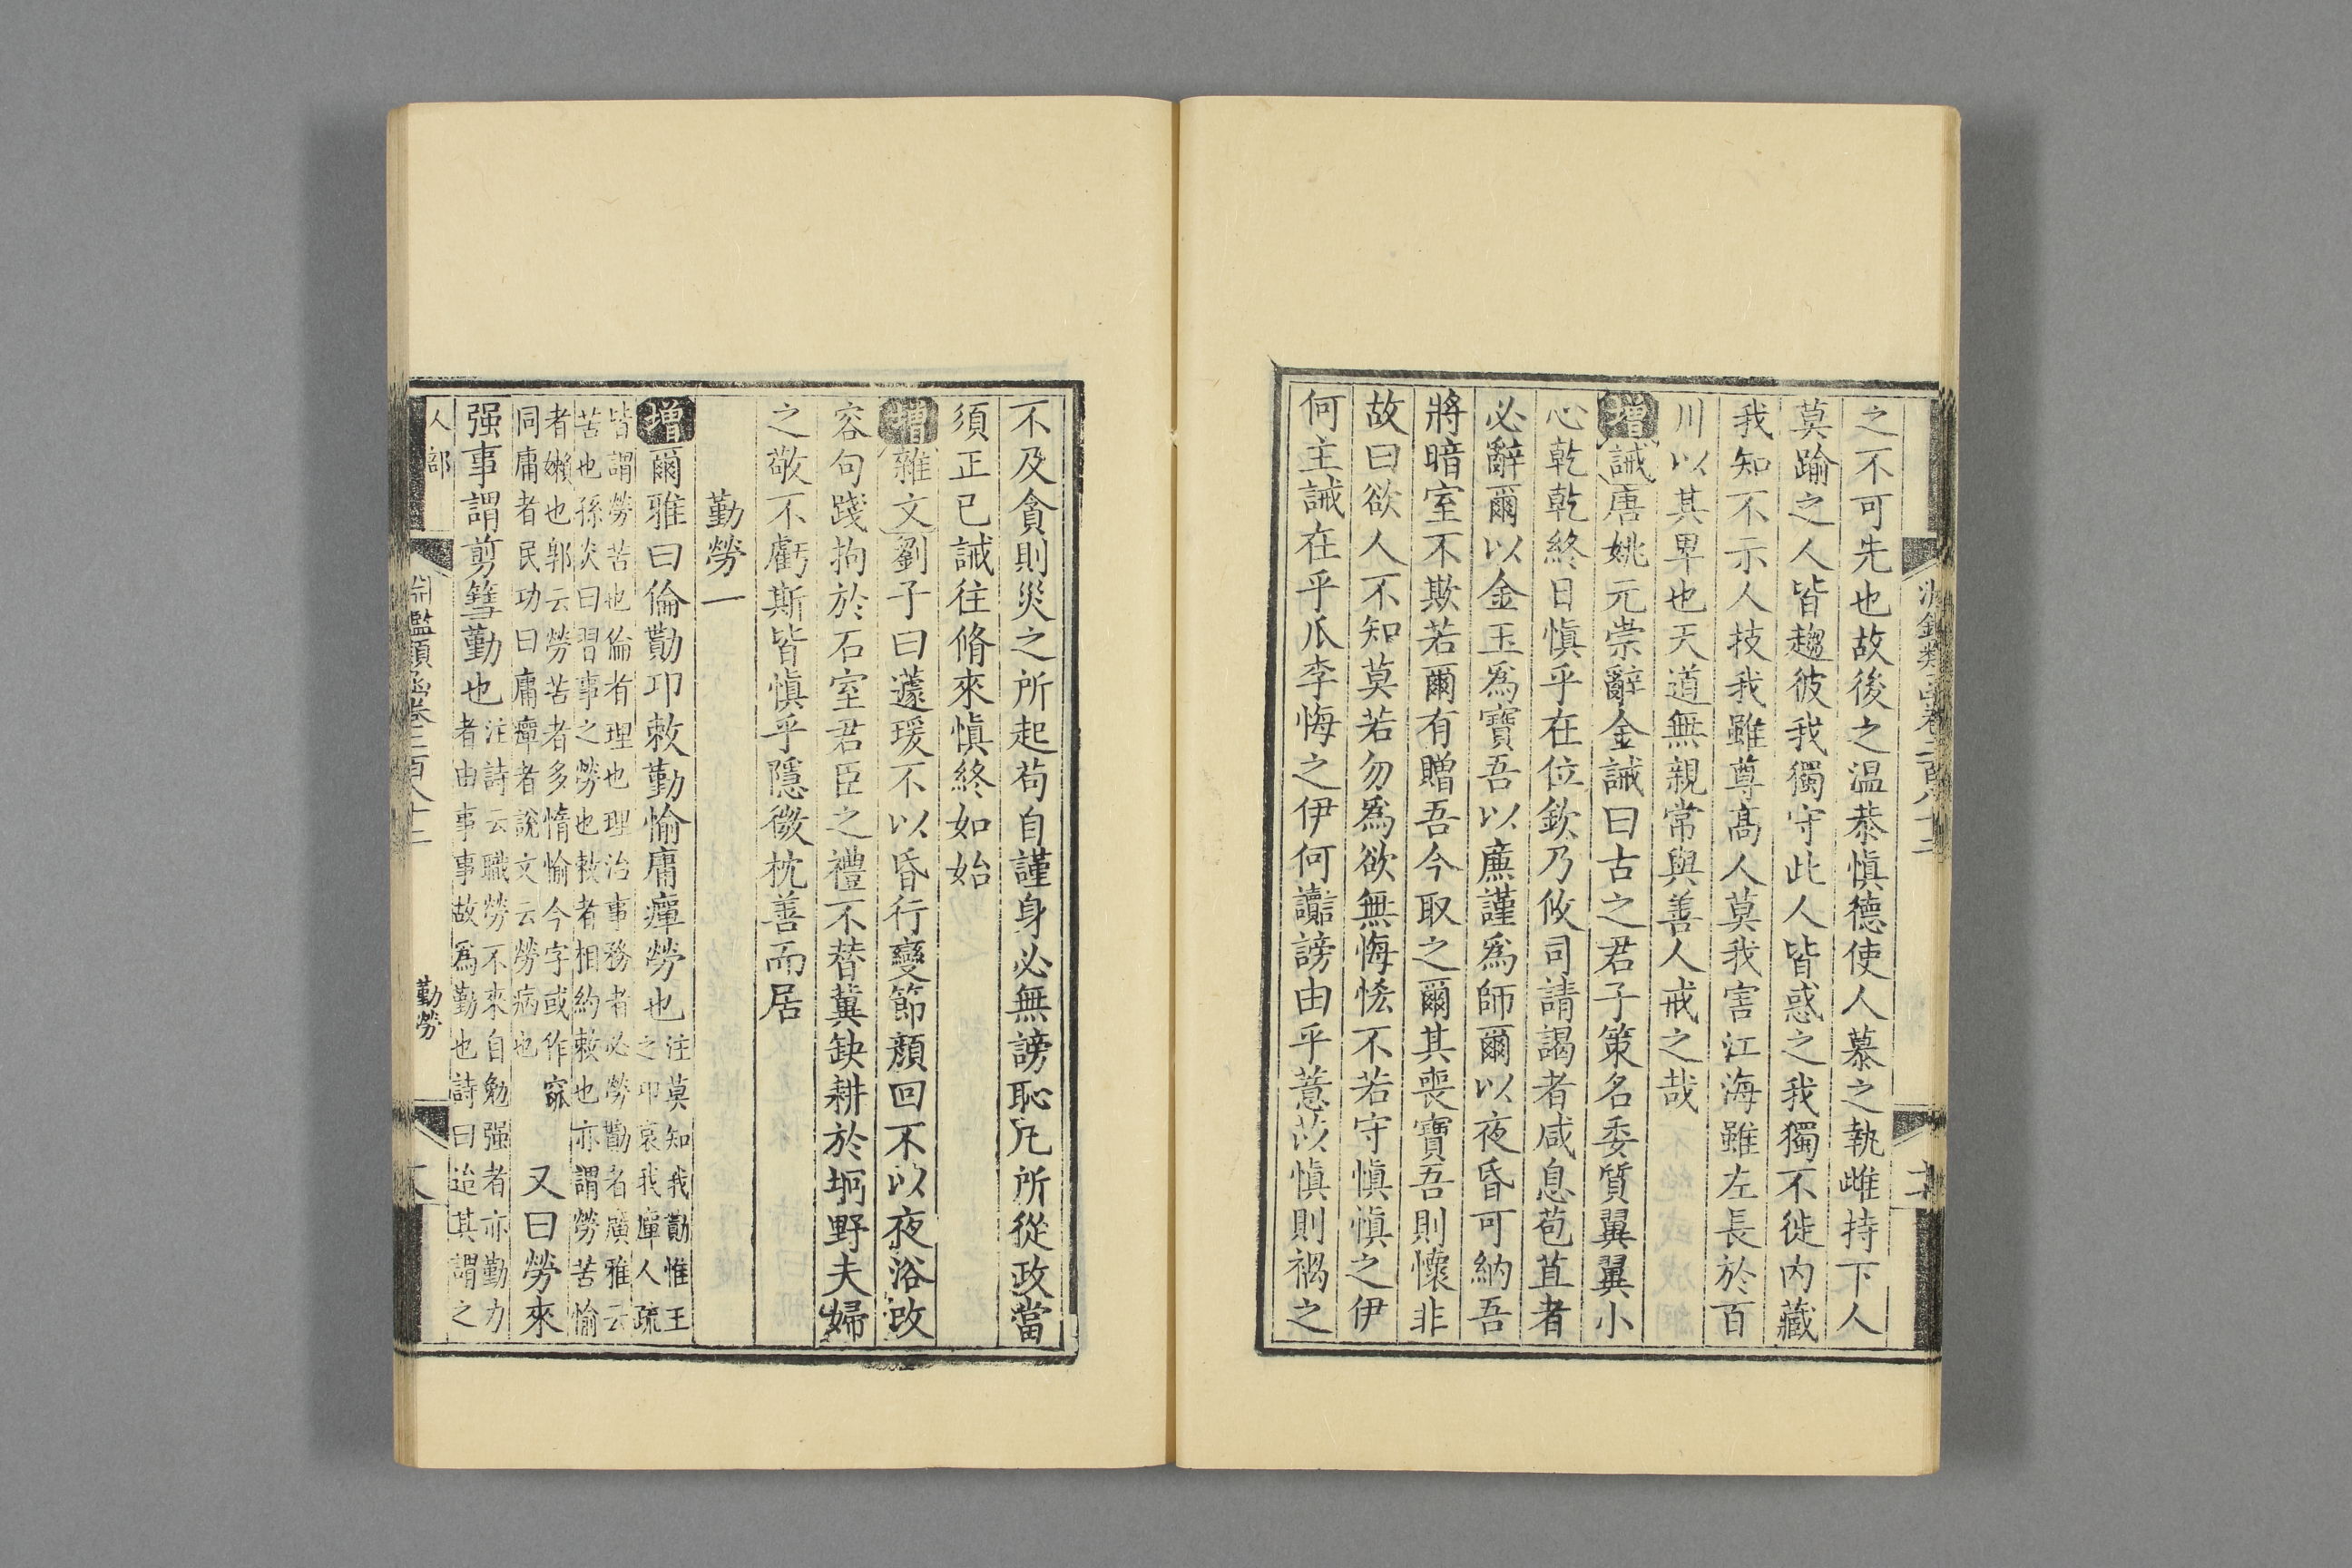 之不可先也故後之温恭慎德使人慕之執雌持下人
莫踰之人皆趨彼我獨守此人皆惑之我獨不徙内藏
我知不示人技我雖尊髙人莫我害江海雖左長於百
川以其卑也天道無親常與善人戒之哉
增誡唐姚元崇辭金誡曰古之君子策名委質翼翼小
心乾乾終日慎乎在位欽乃攸司請謁者咸息苞苴者
必辭爾以金玉爲寶吾以廉謹爲師爾以夜昏可納吾
將暗室不欺若爾有贈吾今取之爾其喪寶吾則懷非
故曰欲人不知莫若勿爲欲無悔恡不若守慎慎之伊
何主誡在乎瓜李悔之伊何讟謗由乎薏苡慎則禍之
不及貪則災之所起苟自謹身必無謗恥凡所從政當
須正已誡往脩來慎終如始
增雜文劉子曰蘧瑗不以昏行變節顔回不以夜浴改
容句踐拘於石室君臣之禮不替冀缺耕於坰野夫婦
之敬不虧斯皆慎乎隱微枕善而居
勤勞一
增爾雅曰倫勩卭敕勤愉庸癉勞也
注莫知我勩惟王
之卭哀我癉人疏
皆謂勞苦也倫者理也理治事務者必勞勩者廣雅云
苦也孫炎曰習事之勞也敕者相約敕也亦謂勞苦愉
者嬾也郭云勞苦者多惰愉今字或作窳
同庸者民功曰庸癉者說文云勞病也
又曰勞來
强事謂剪篲勤也
注詩云職勞不來自勉强者亦勤力
者由事事故爲勤也詩曰迨其謂之
人部
淵鑑類函卷二百八十三
勤勞